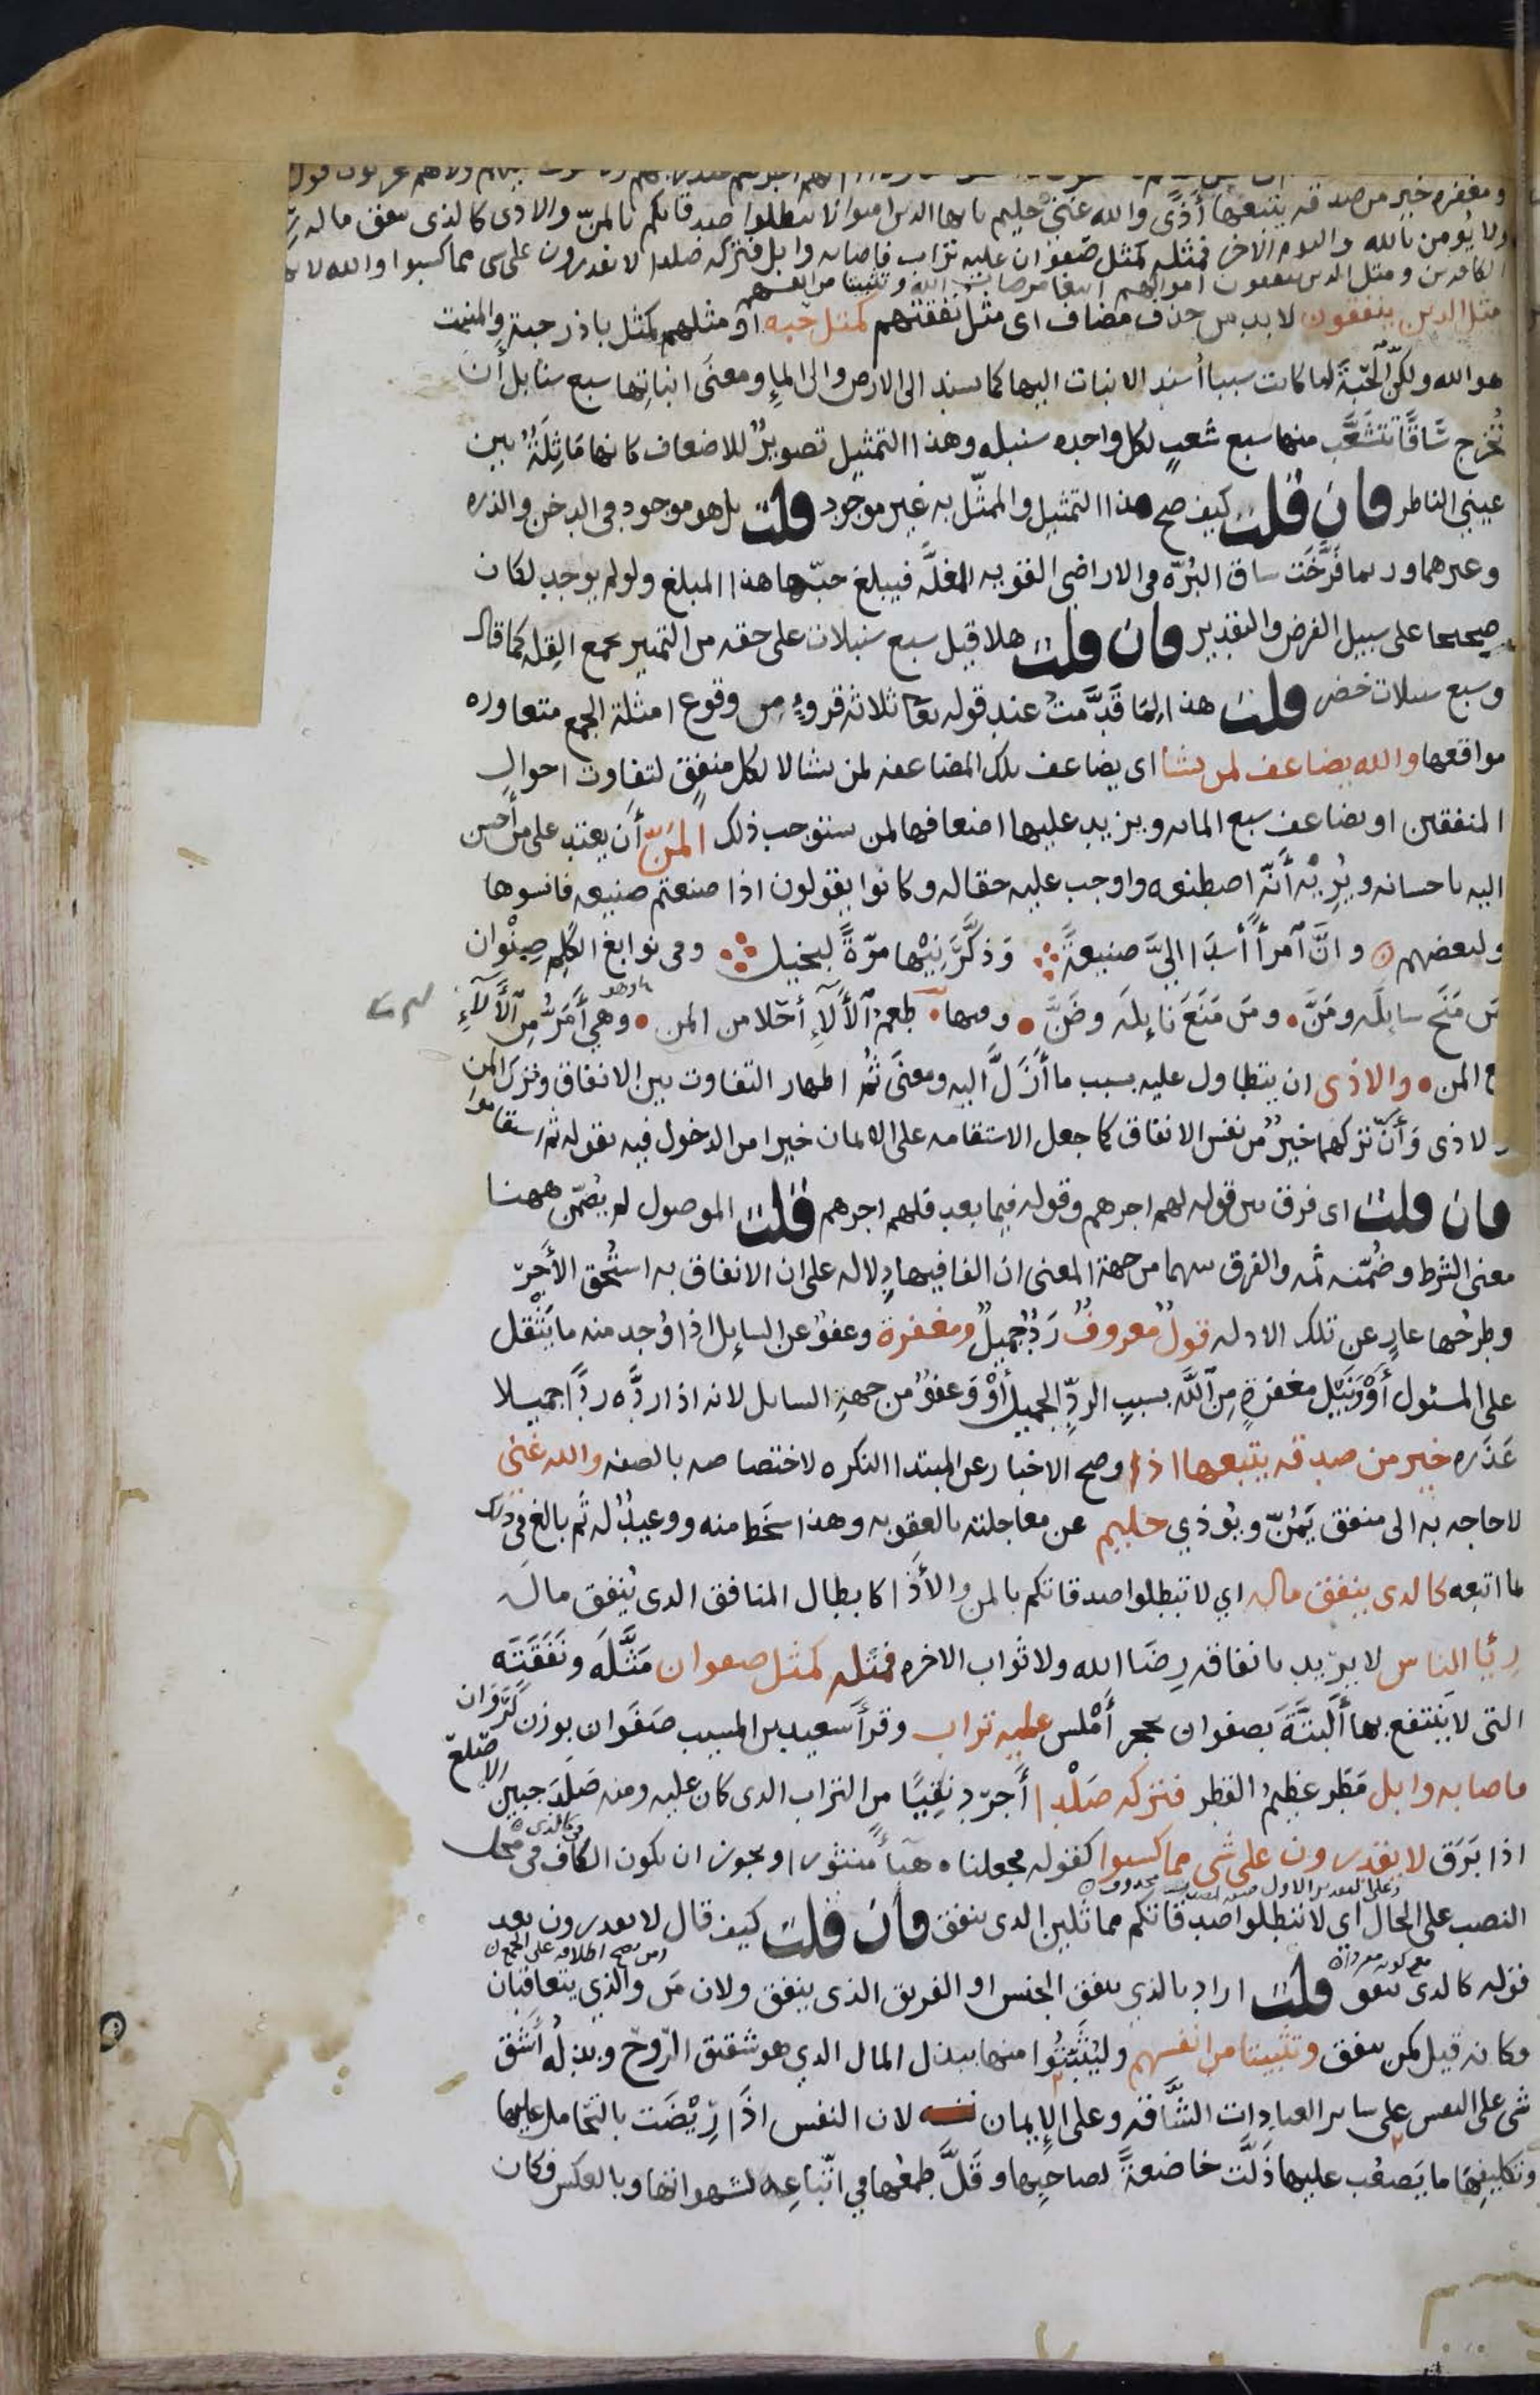 ومغفرة خير من صدقة يتبعها أذى والله غني حليم يا ايها الذين امنوا لا تبطلوا صدقاتكم بالمن والاذى كالذى ينفق ماله
ولا يؤمن بالله واليوم الاخر فمثله كمثل صفوان عليه تراب فاصابه وابل فتركه صلدا لا يقدرون على شى مما كسبوا والله لا
الكافرين ومثل الذين ينفقون اموالهم ابتغا مرضات الله وتثبيتا من انفسهم
مثل الذين ينفقون لا بد من حذف مضاف اى مثل نفقتهم كمثل حبه او مثلهم كمثل باذر حبة والمنبت
هو الله ولكن الحبة لما كانت سببا أسند الانبات اليها كما يسند الى الارض والى الماء ومعنى انباتها سبع سنابل أن
تخرج ساقا تتشعب منها سبع شعب لكل واحده سنبله وهذا التمثيل تصوير للاضعاف كانها ماثلة بين
عيني الناظر فان قلت كيف صح هذا التمثيل والممثل به غير موجود قلت بل هو موجود فى الدخن والذره
وغيرهما وربما فرخت ساق البره فى الاراضى القويه المغلة فيبلغ حبها هذا المبلغ ولو لم يوجد لكان
صحيحا على سبيل الفرض والتقدير فان قلت هلا قيل سبع سنبلات على حقه من التمييز بجمع القله كما قال
وسبع سنبلات خضر قلت هذا لما قدمت عند قوله تعا ثلاثة قروء من وقوع امثلة الجمع متعاوره
مواقعها والله يضاعف لمن يشا اى يضاعف تلك المضاعفه لمن يشا لا لكل منفق لتفاوت احوال
المنفقين او يضاعف سبع المائه ويزيد عليها اضعافها لمن يستوجب ذلك المن أن يعتد على من أحسن
اليه باحسانه ويريه أنه اصطنعه واوجب عليه حقا له وكانوا يقولون اذا صنعتم صنيعه فانسوها
ولبعضهم وان آمرأ أسدا الي صنيعة وذكرنيها مرة لبخيل وفى نوابغ الكلم صنوان
من منح سايله ومن ومن منع نايله وضن وفيها طعم الآلاء أحلا من المن وهي أمر من الآلاء
مع المن والاذى ان يتطاول عليه بسبب ما أزل اليه ومعنى ثم اظهار التفاوت بين الانفاق وترك المن
والاذى وأن تركهما خير من نفس الانفاق كما جعل الاستقامه على الايمان خيرا من الدخول فيه بقوله ثم استقاموا
فان قلت اى فرق بين قوله لهم اجرهم وقوله فيما بعد فلهم اجرهم قلت الموصول لم يضمن ههنا
معنى الشرط وضمنه ثمه والفرق بينهما من جهة المعنى ان الفا فيها دلاله على ان الانفاق به استحق الأجر
وطرحها عار عن تلك الادله قول معروف رد جميل ومغفرة وعفو عن السايل اذا وجد منه ما يثقل
على المسئول أو ونيل مغفرة من الله بسبب الرد الجميل أو وعفو من جهة السايل لانه اذا رده ردا جميلا
عذره خير من صدقه يتبعها اذا وصح الاخبار عن المبتدا النكره لاختصاصه بالصفه والله غني
لا حاجه به الى منفق يمن ويؤذي حليم عن معاجلته بالعقوبه وهذا سخط منه ووعيد له ثم بالغ فى ذلك
بما اتبعه كالذى ينفق ماله اي لا تبطلوا صدقاتكم بالمن والأذا كابطال المنافق الذى ينفق ماله
رئا الناس لا يريد بانفاقه رضا الله ولا ثواب الاخره فمثله كمثل صفوان مثله ونفقته
التى لا ينتفع بها ألبتة بصفوان بحجر أملس عليه تراب وقرأ سعيد بن المسيب صفوان بوزن كروان
فاصابه وابل مطر عظيم القطر فتركه صلدا أجرد نقيا من التراب الذى كان عليه ومنه صلد جبين الاصلع
اذا برق لا يقدرون على شى مما كسبوا كقوله فجعلناه هبآ منثورا ويجوز ان تكون الكاف فى محل
النصب على الحال اي لا تبطلوا صدقاتكم مماثلين الذى ينفق فان قلت كيف قال لا يقدرون بعد
قوله كالذى ينفق قلت اراد بالذي ينفق الجنس او الفريق الذى ينفق ولان من والذي يتعاقبان
فكانه قيل كمن ينفق وتثبيتا من انفسهم وليثبتوا منها ببذل المال الذي هو شقيق الروح وبذله أشق
شى على النفس على ساير العبادات الشاقه وعلى الإيمان لان النفس اذا ريضت بالتحامل عليها
وتكليفها ما يصعب عليها ذلت خاضعة لصاحبها وقل طمعها في اتباعه لشهواتها وبالعكس فكان